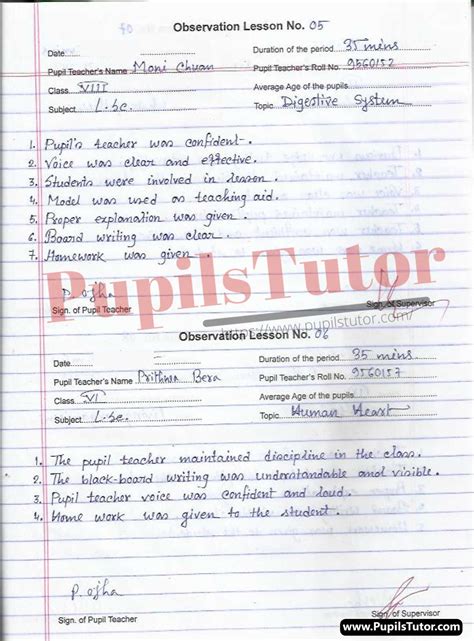 Observation Lesson No. 05
Date Duration of the period 35 mins
Pupil Teacher's Name Moni Chuan Pupil Teacher's Roll No. 9560152
Class VIII Average Age of the pupils
Subject L.Sc. Topic Digestive System
1. Pupil's teacher was confident.
2. Voice was clear and effective.
3. Students were involved in lesson.
4. Model was used as teaching aid.
5. Proper explanation was given.
6. Board writing was clear.
7. Homework was given.
PupilsTutor
P. Ojha
Sign. of Pupil Teacher Sign. of Supervisor
https://www.pupilstutor.com/
Observation Lesson No. 06
Date Duration of the period 35 mins
Pupil Teacher's Name Prithwa Bera Pupil Teacher's Roll No. 9560157
Class VI Average Age of the pupils
Subject L.Sc. Topic Human Heart
1. The pupil teacher maintained discipline in the class.
2. The black-board writing was understandable and visible.
3. Pupil teacher voice was confident and loud.
4. Home work was given to the student.
P. Ojha
Sign. of Pupil Teacher Sign. of Supervisor
www.PupilsTutor.com